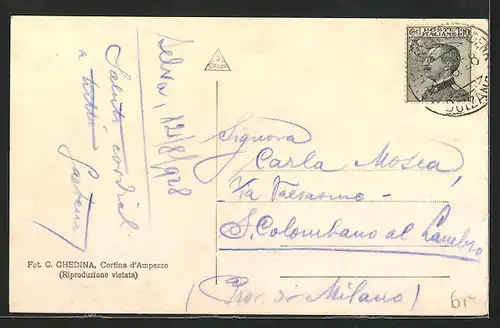 Selva, 12/8/928
Saluti cordiali
a tutti
Gaetano
Fot. G. GHEDINA, Cortina d'Ampezzo
(Riproduzione vietata)
Signora
Carla Mosca,
Via Valsasino
S. Colombano al Lambro
(Prov. di Milano)
6,-